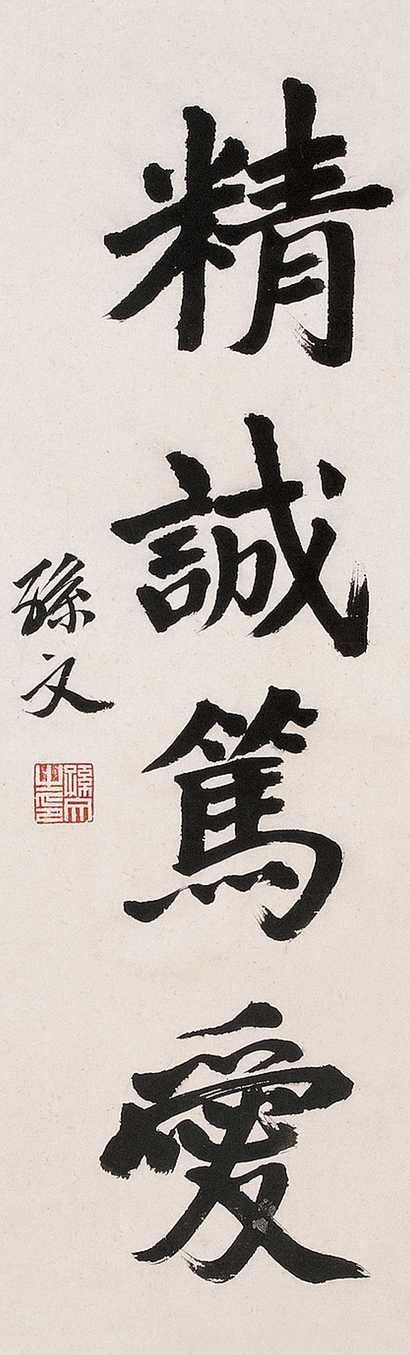 精誠篤愛
孫文
孫文之印